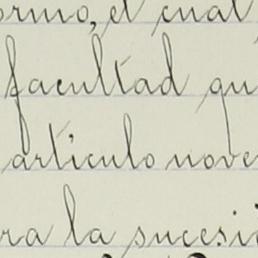 ormo, el cual
facultad qu
artículo nove
ra la sucesi